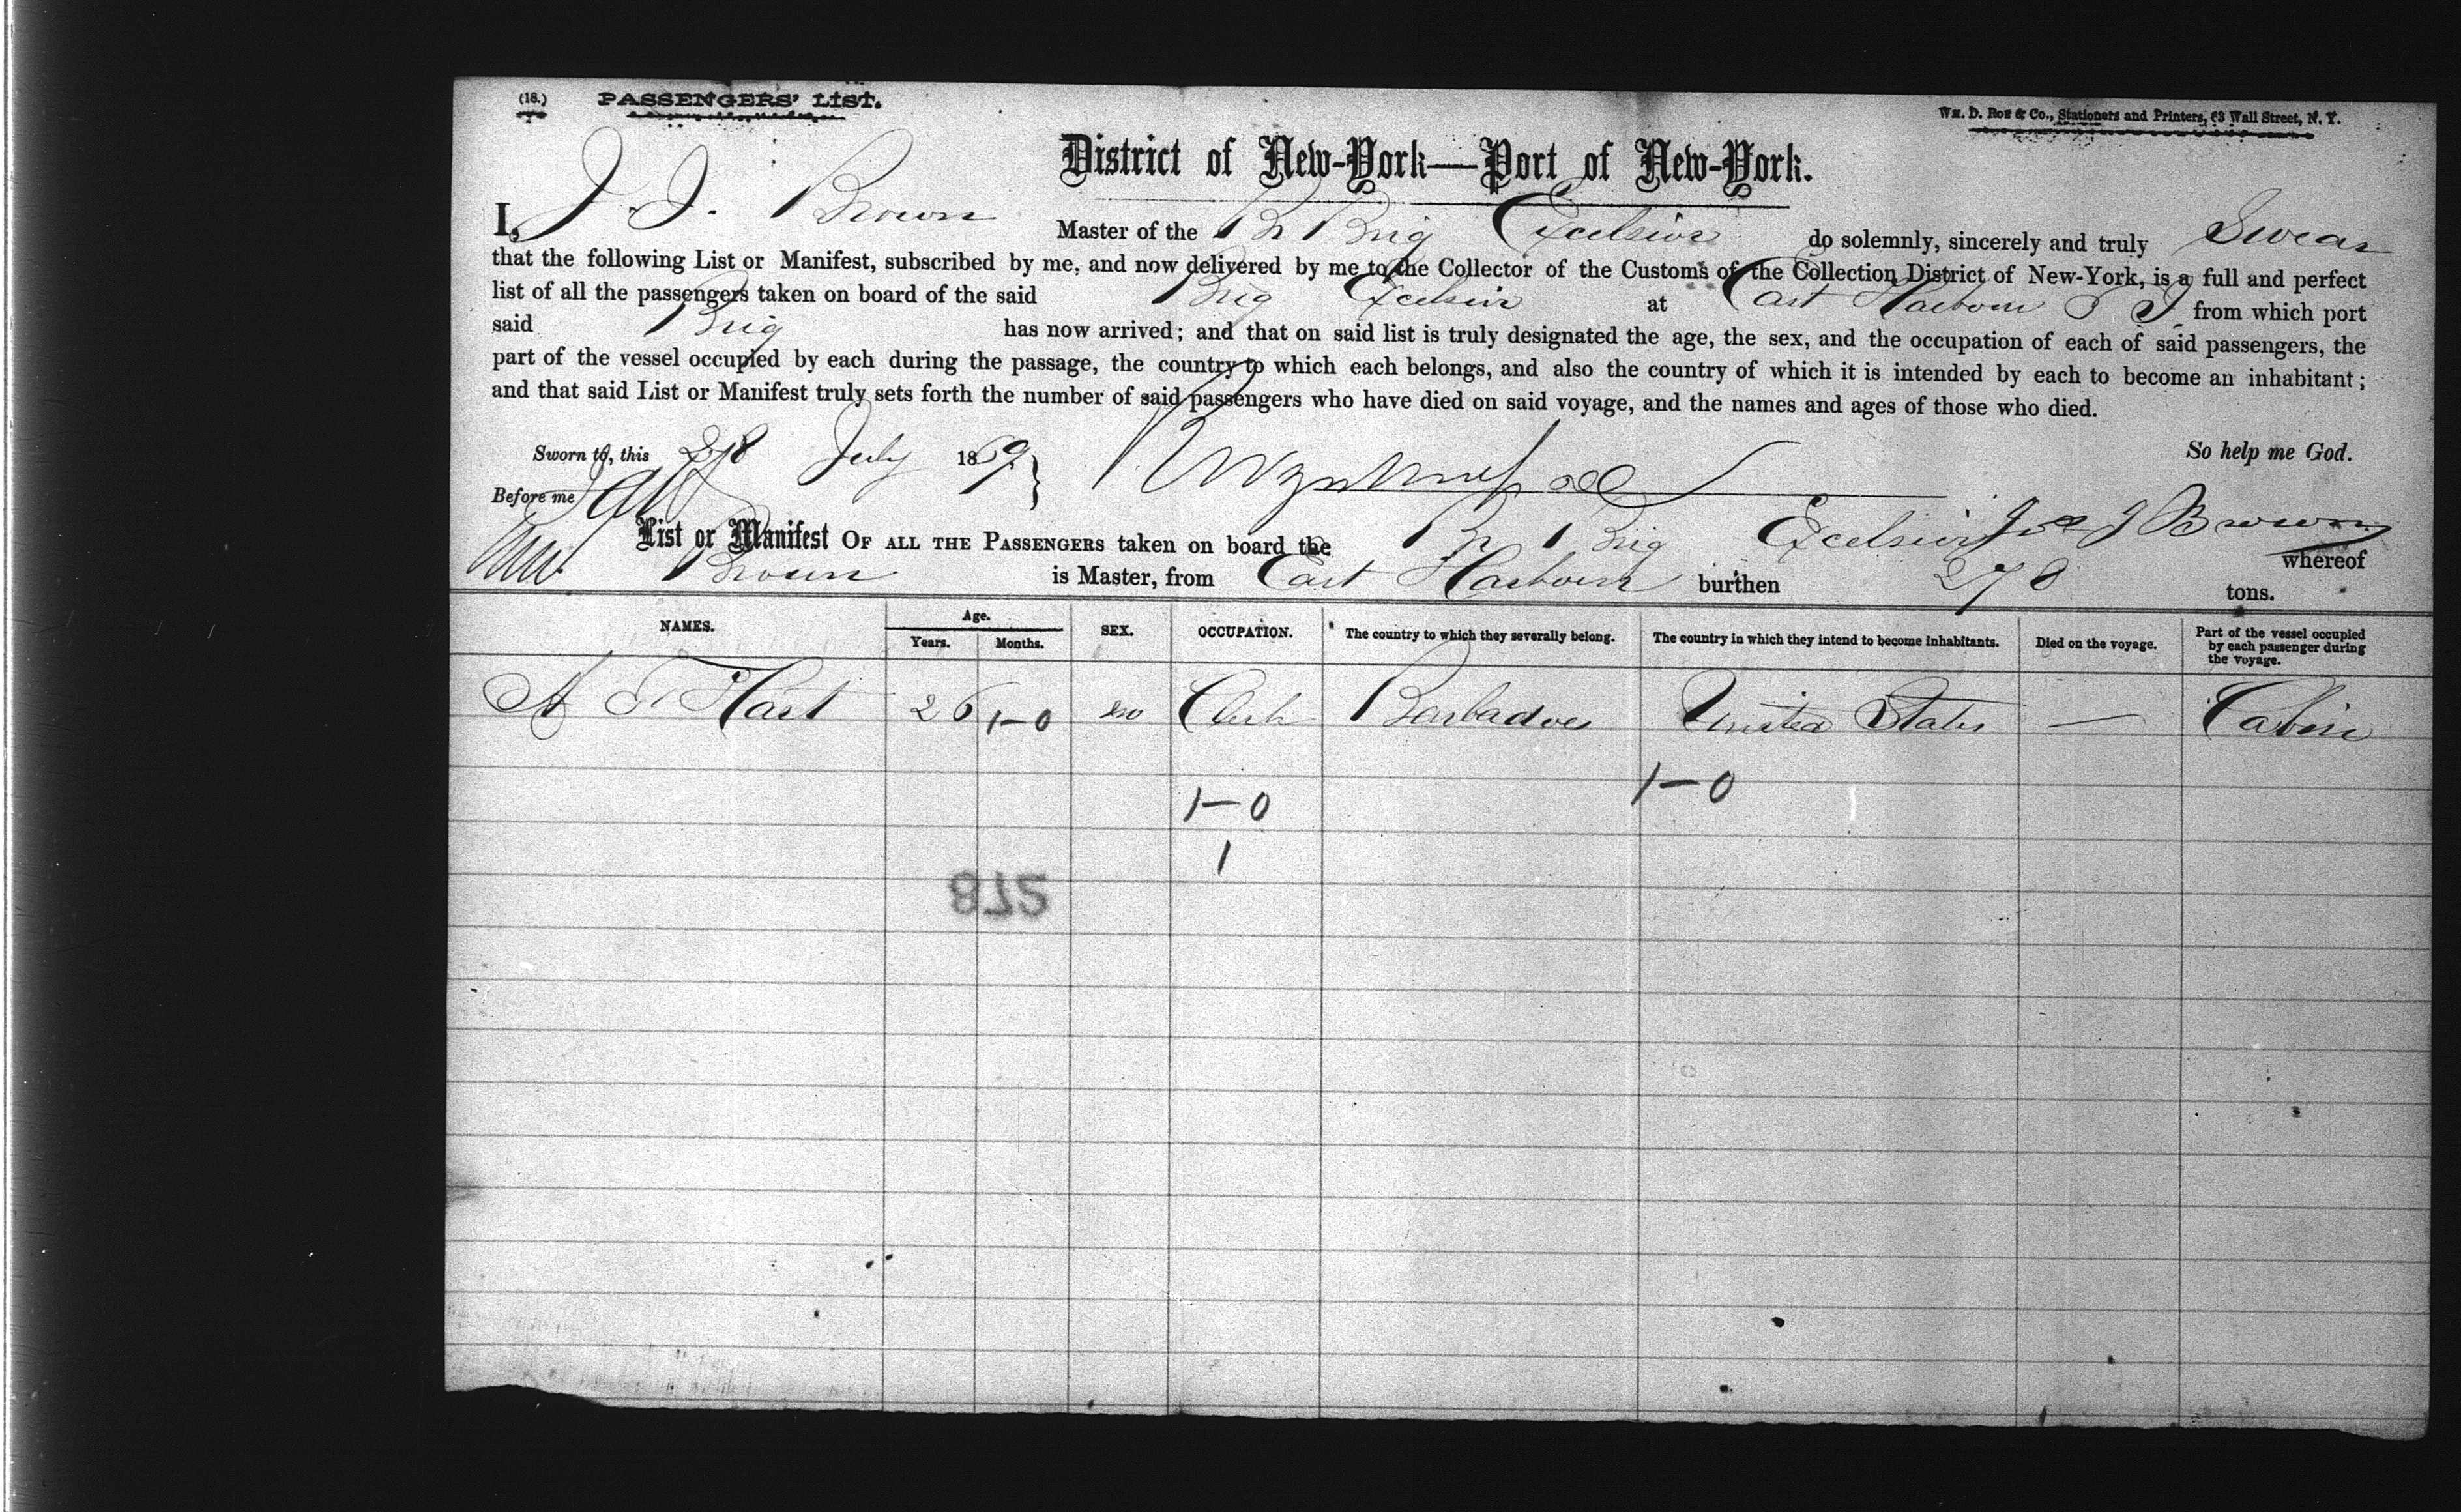 (18.) PASSENGERS' LIST.
Wm. D. Roe & Co., Stationers and Printers, 63 Wall Street, N. Y.
District of New-York—Port of New-York.
I, J. J. Brown Master of the Br Brig Excelsior do solemnly, sincerely and truly Swear
that the following List or Manifest, subscribed by me, and now delivered by me to the Collector of the Customs of the Collection District of New-York, is a full and perfect
list of all the passengers taken on board of the said Brig Excelsior at East Harbour T I from which port
said Brig has now arrived; and that on said list is truly designated the age, the sex, and the occupation of each of said passengers, the
part of the vessel occupied by each during the passage, the country to which each belongs, and also the country of which it is intended by each to become an inhabitant;
and that said List or Manifest truly sets forth the number of said passengers who have died on said voyage, and the names and ages of those who died.
Sworn to, this 28 July 1869
So help me God.
Before me
J Brown
List or Manifest OF ALL THE PASSENGERS taken on board the Br Brig Excelsior whereof
Brown is Master, from East Harbour burthen 278 tons.
NAMES. Age. Years. Months. SEX. OCCUPATION. The country to which they severally belong. The country in which they intend to become inhabitants. Died on the voyage. Part of the vessel occupied by each passenger during the voyage.
A T Hart 26 1-0 m Clerk Barbadoes United States — Cabin
1-0 1-0
1
872